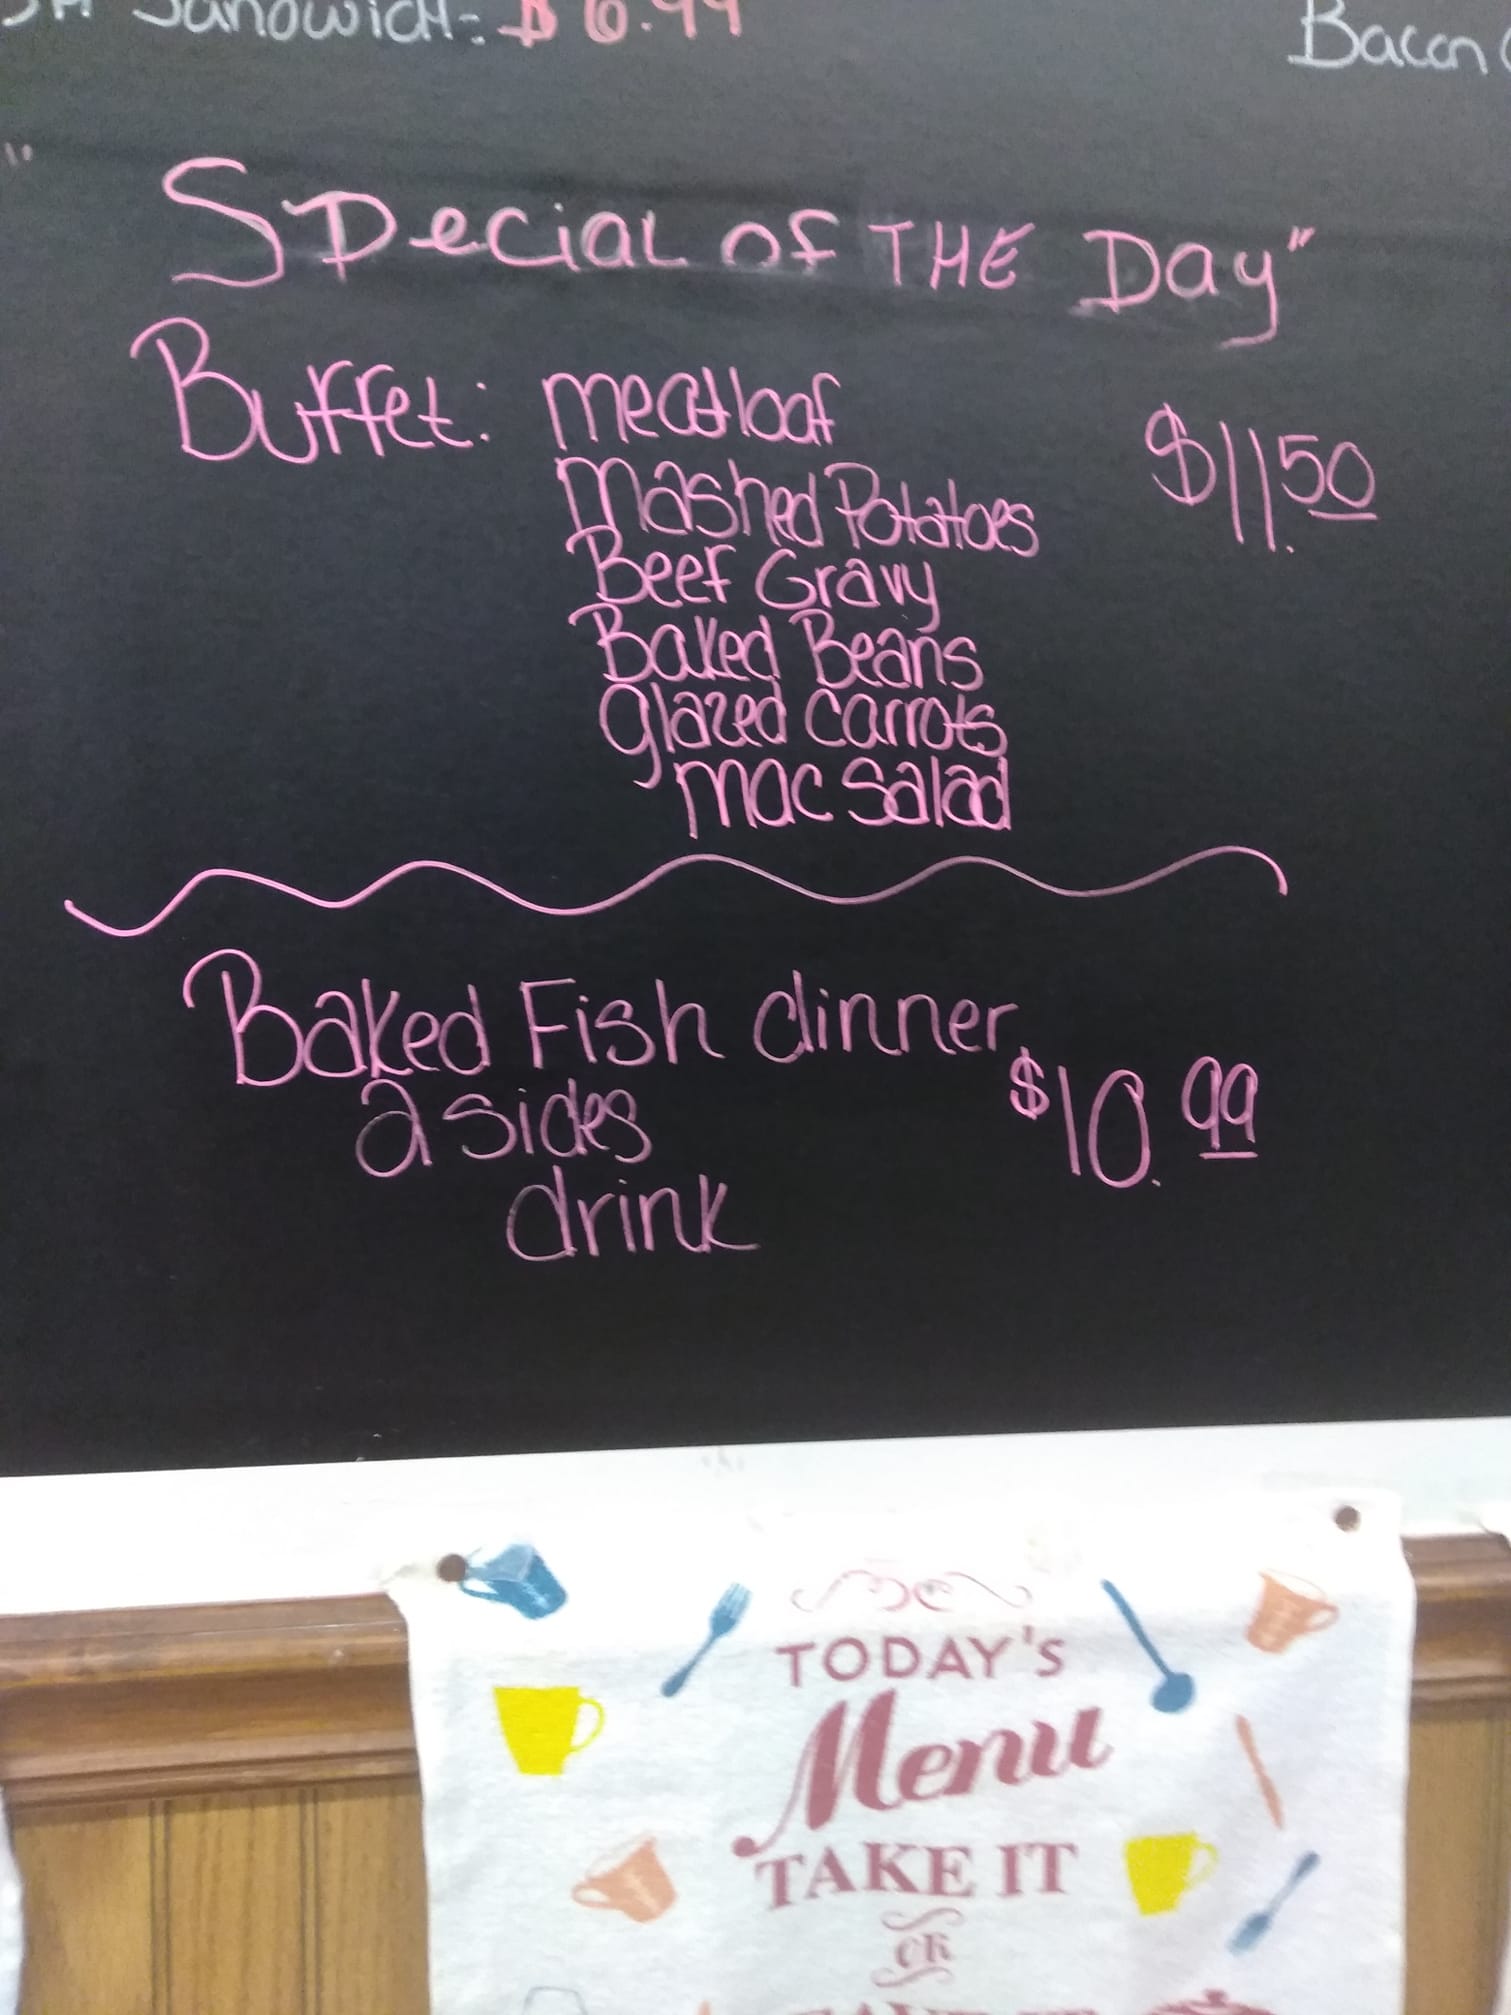 Sandwich: $6.99
Bacon
"Special of THE Day"
Buffet: meatloaf $11.50
Mashed Potatoes
Beef Gravy
Baked Beans
glazed carrots
mac salad
Baked Fish dinner
2 sides $10.99
drink
TODAY'S
Menu
TAKE IT
OR